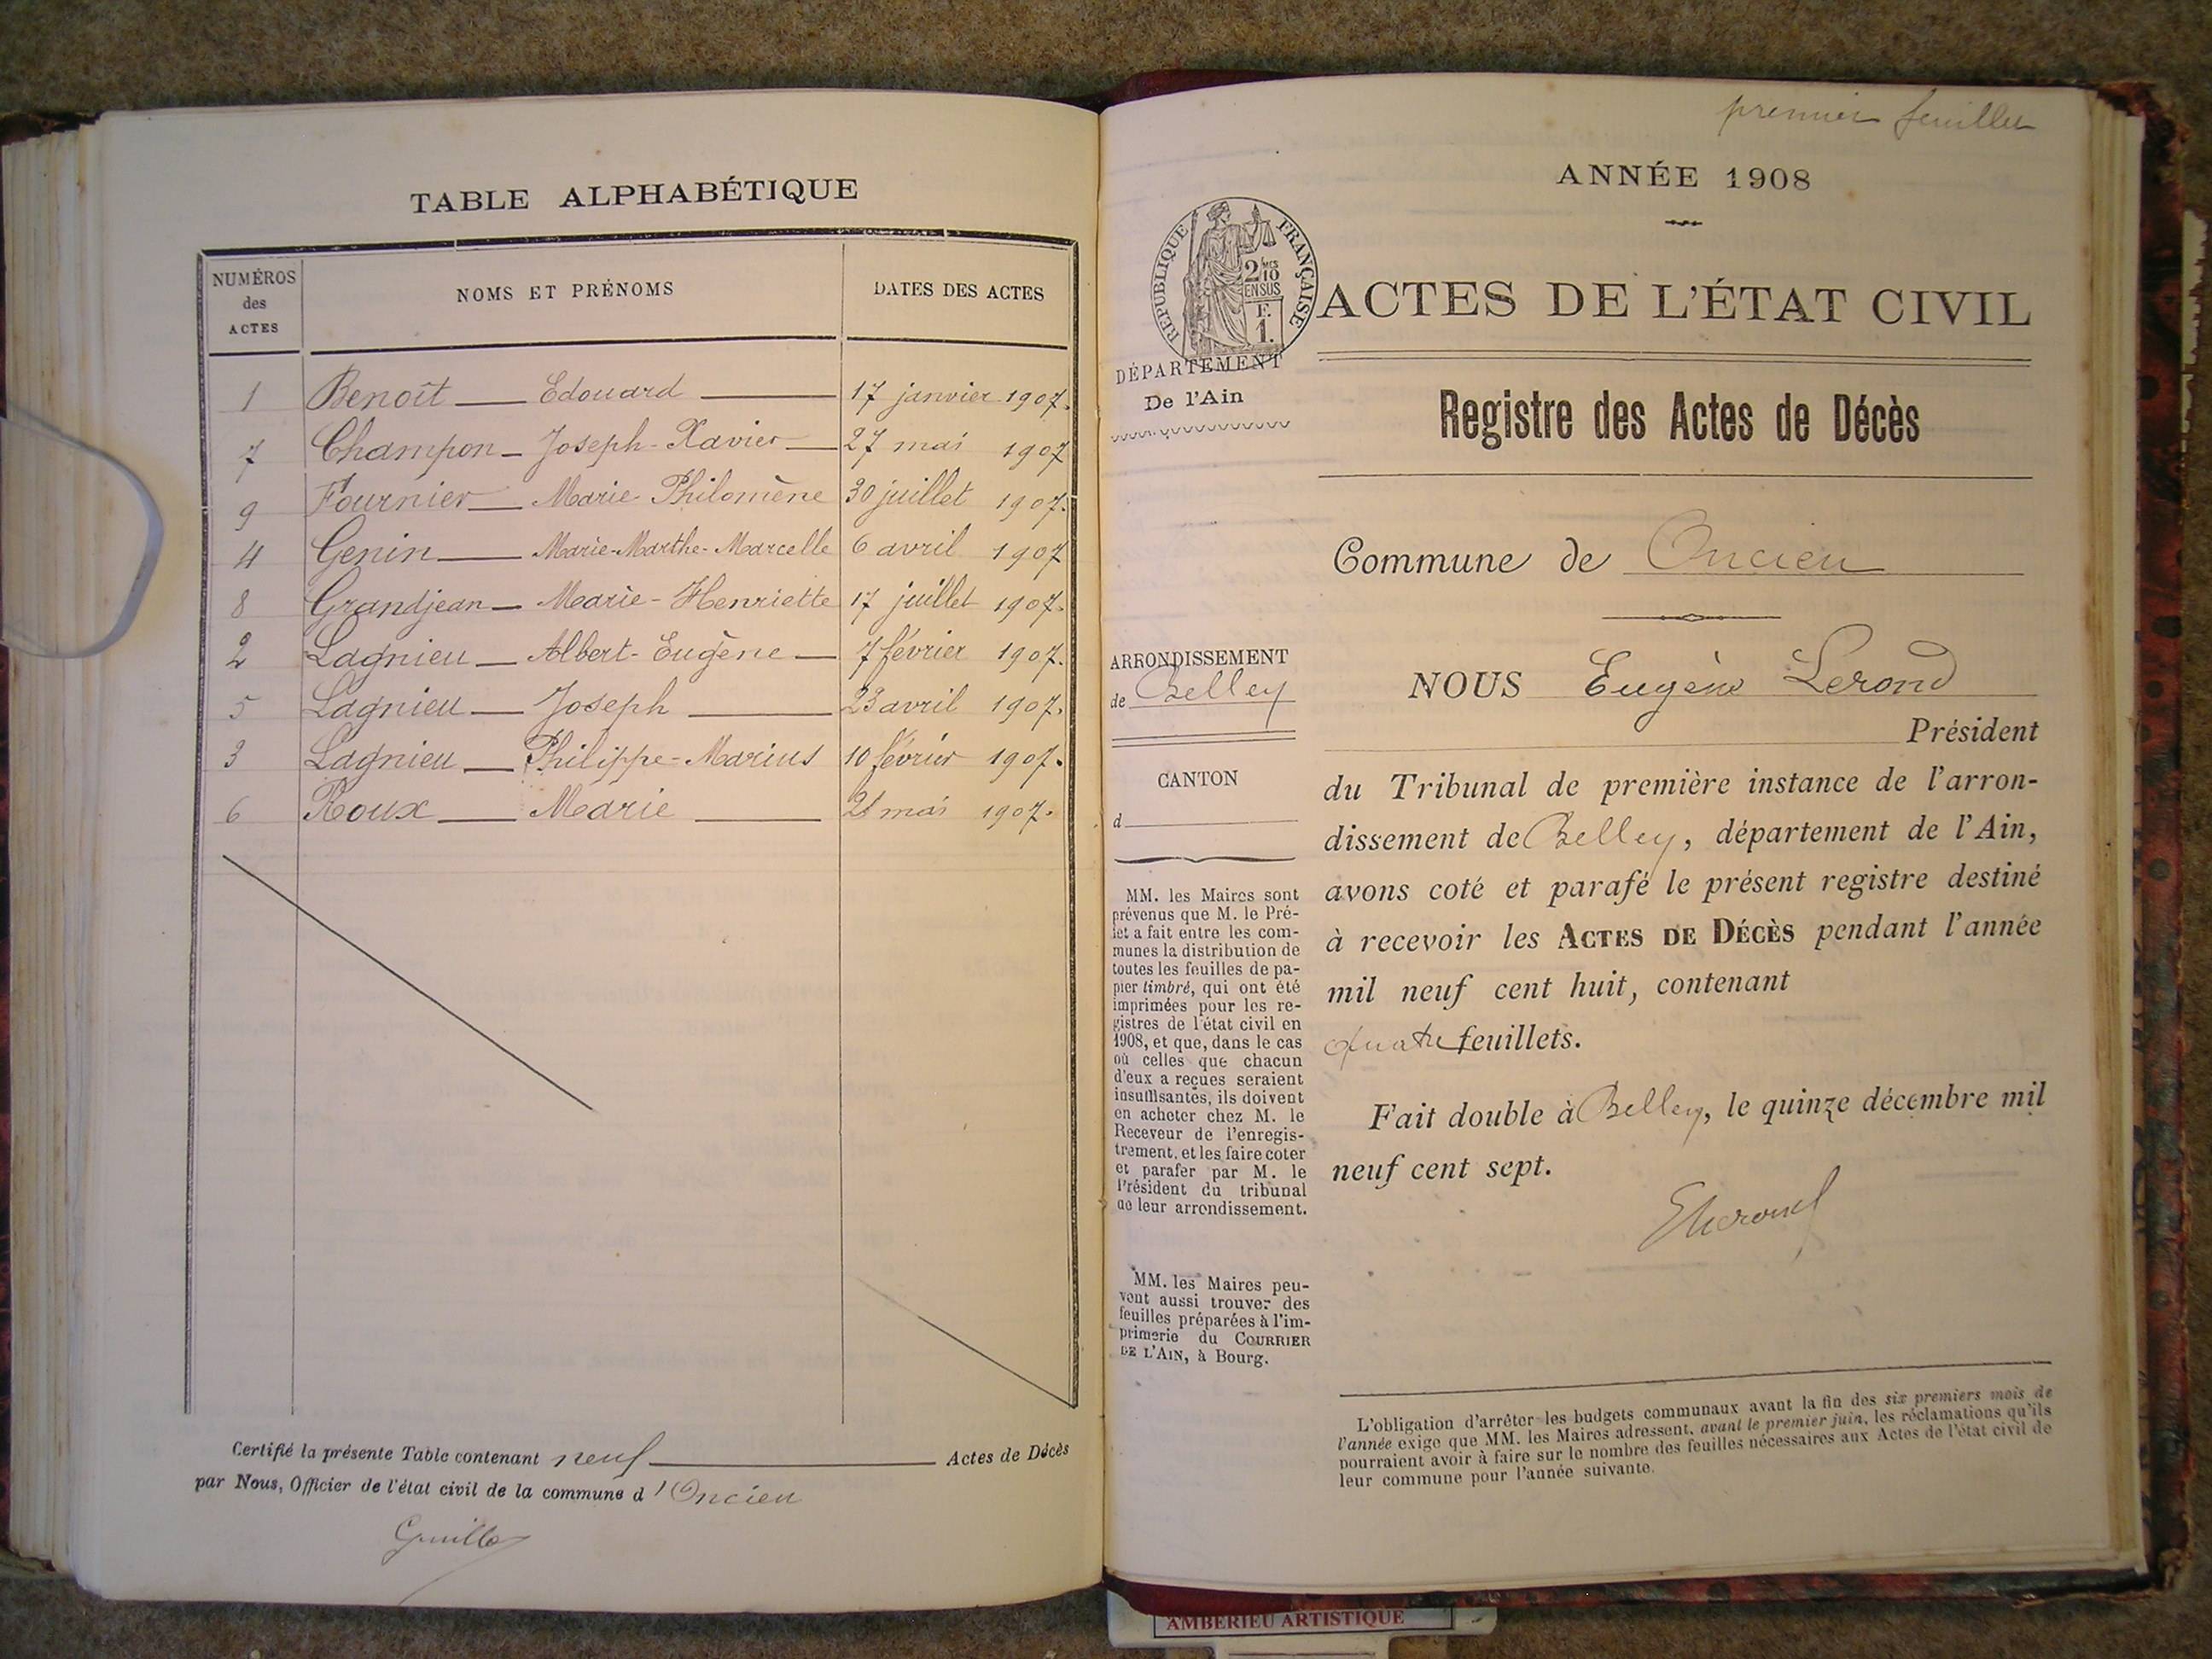 TABLE ALPHABÉTIQUE
NUMÉROS des ACTES NOMS ET PRÉNOMS DATES DES ACTES
1 Benoît — Edouard — 17 janvier 1907.
7 Champon — Joseph-Xavier — 27 mai 1907
9 Fournier — Marie-Philomène 30 juillet 1907.
4 Genin — Marie-Marthe-Marcelle 6 avril 1907
8 Grandjean — Marie-Henriette 17 juillet 1907.
2 Lagnieu — Albert-Eugène — 7 février 1907.
5 Lagnieu — Joseph — 23 avril 1907.
3 Lagnieu — Philippe-Marius 10 février 1907.
6 Roux — Marie — mai 1907.
Certifié la présente Table contenant neuf — Actes de Décès
par Nous, Officier de l'état civil de la commune d'Oncieu
premier feuillet
ANNÉE 1908
RÉPUBLIQUE FRANÇAISE
2/10 EN SUS
F. 1.
ACTES DE L'ÉTAT CIVIL
DÉPARTEMENT
De l'Ain
Registre des Actes de Décès
Commune de Oncieu
ARRONDISSEMENT
de Belley
CANTON
d
MM. les Maires sont
prévenus que M. le Pré-
fet a fait entre les com-
munes la distribution de
toutes les feuilles de pa-
pier timbré, qui ont été
imprimées pour les re-
gistres de l'état civil en
1908, et que, dans le cas
où celles que chacun
d'eux a reçues seraient
insuffisantes, ils doivent
en acheter chez M. le
Receveur de l'enregis-
trement, et les faire coter
et parafer par M. le
Président du tribunal
de leur arrondissement.
MM. les Maires peu-
vent aussi trouver des
feuilles préparées à l'im-
primerie du COURRIER
DE L'AIN, à Bourg.
NOUS Eugène Lerond
Président
du Tribunal de première instance de l'arron-
dissement de Belley, département de l'Ain,
avons coté et parafé le présent registre destiné
à recevoir les ACTES DE DÉCÈS pendant l'année
mil neuf cent huit, contenant
quatre feuillets.
Fait double à Belley, le quinze décembre mil
neuf cent sept.
L'obligation d'arrêter les budgets communaux avant la fin des six premiers mois de
l'année exige que MM. les Maires adressent, avant le premier juin, les réclamations qu'ils
pourraient avoir à faire sur le nombre des feuilles nécessaires aux Actes de l'état civil de
leur commune pour l'année suivante.
AMBERIEU ARTISTIQUE